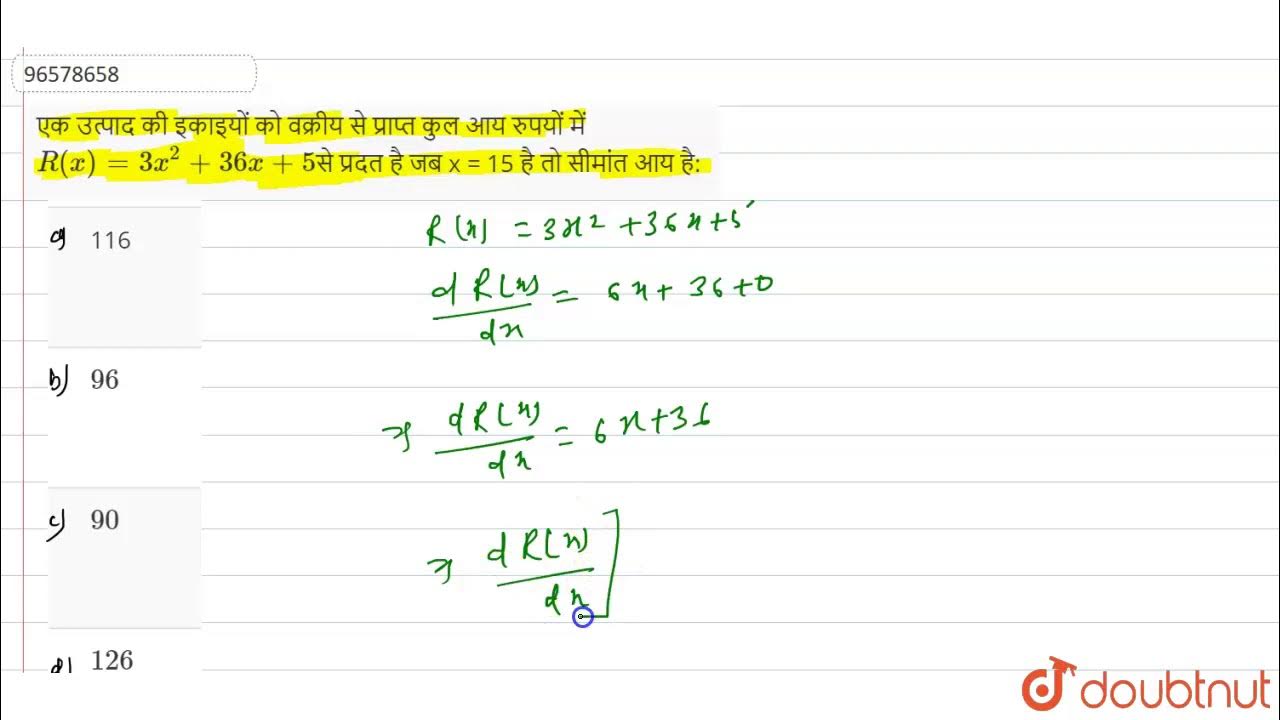 96578658
एक उत्पाद की इकाइयों को वक्रीय से प्राप्त कुल आय रुपयों में
R(x) = 3x² + 36x + 5से प्रदत है जब x = 15 है तो सीमांत आय है:
a) 116
R(x) = 3x² + 36x + 5
dR(x)/dx = 6x + 36 + 0
b) 96
⇒ dR(x)/dx = 6x + 36
c) 90
⇒ dR(x)/dx]
d) 126
doubtnut